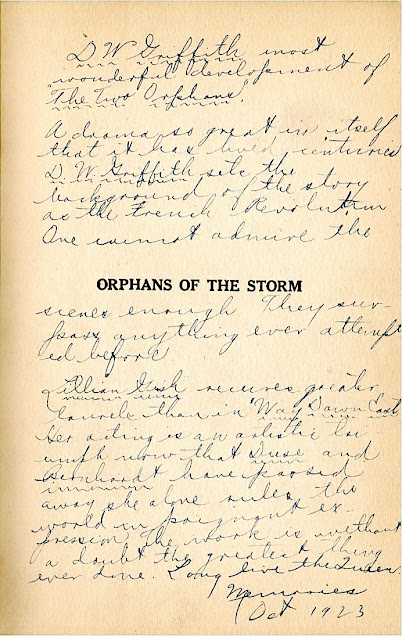 D W Griffith most
wonderful development of
"The Two Orphans".
A drama so great in itself
that it has lived centuries
D. W. Griffith sets the
background of the story
as the French Revolution
One cannot admire the
ORPHANS OF THE STORM
scenes enough They sur-
pass anything ever attempt
ed before
Lillian Gish secures greater
laurels than in "Way Down East
her acting is an artistic tri
umph now that Duse and
Bernhardt have passed
away she alone rules the
world in poignant ex-
pression The work is without
a doubt the greatest thing
ever done. Long live the Queen.
Memories
Oct 1923